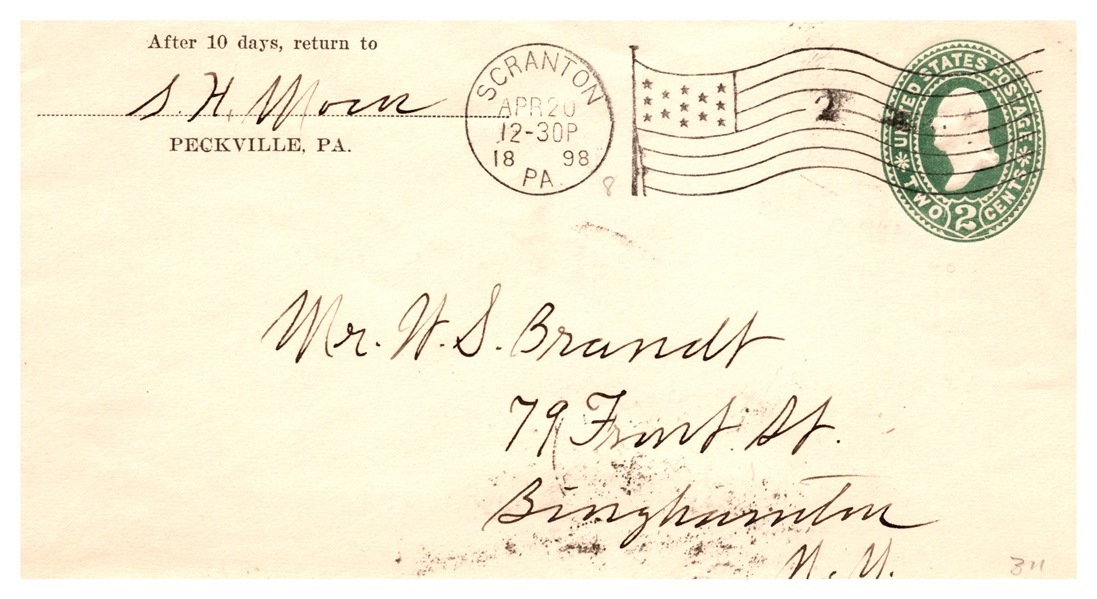 After 10 days, return to
S. H. Moon
PECKVILLE, PA.
SCRANTON
APR 20
12-30P
18 98
PA.
8
2
UNITED STATES POSTAGE
TWO 2 CENTS
Mr. W. S. Brandt
79 Front St.
Binghamton
N. Y.
311